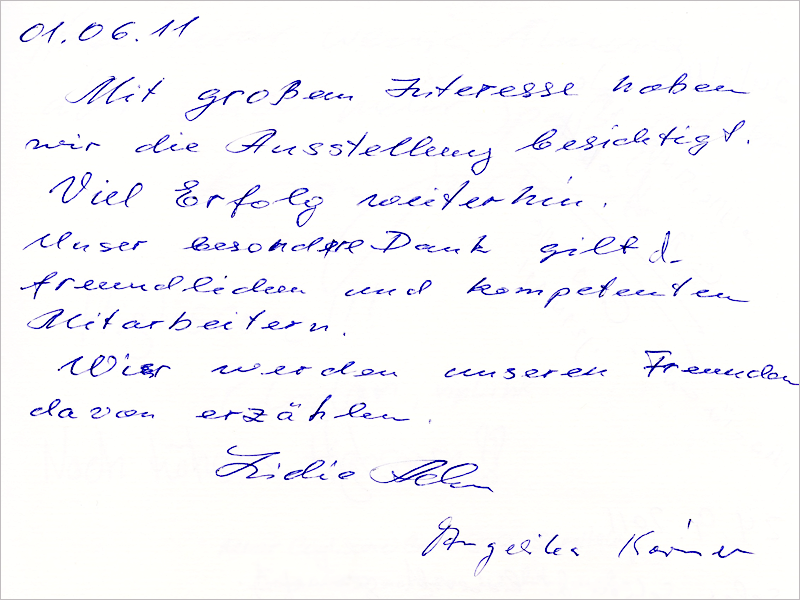 01.06.11
Mit großem Interesse haben
wir die Ausstellung besichtigt.
Viel Erfolg weiterhin.
Unser besondere Dank gilt d.
freundlichen und kompetenten
Mitarbeitern.
Wir werden unseren Freunden
davon erzählen.
Lidia
Angelika Körner